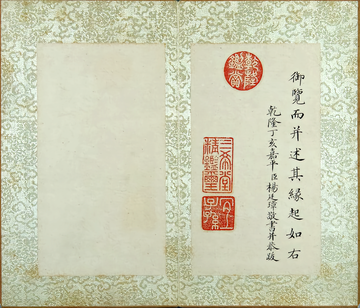 御覽而并述其緣起如右
乾隆丁亥嘉平臣楊廷璋敬書并恭跋
乾隆鑑賞
三希堂精鑑璽
宜子孫